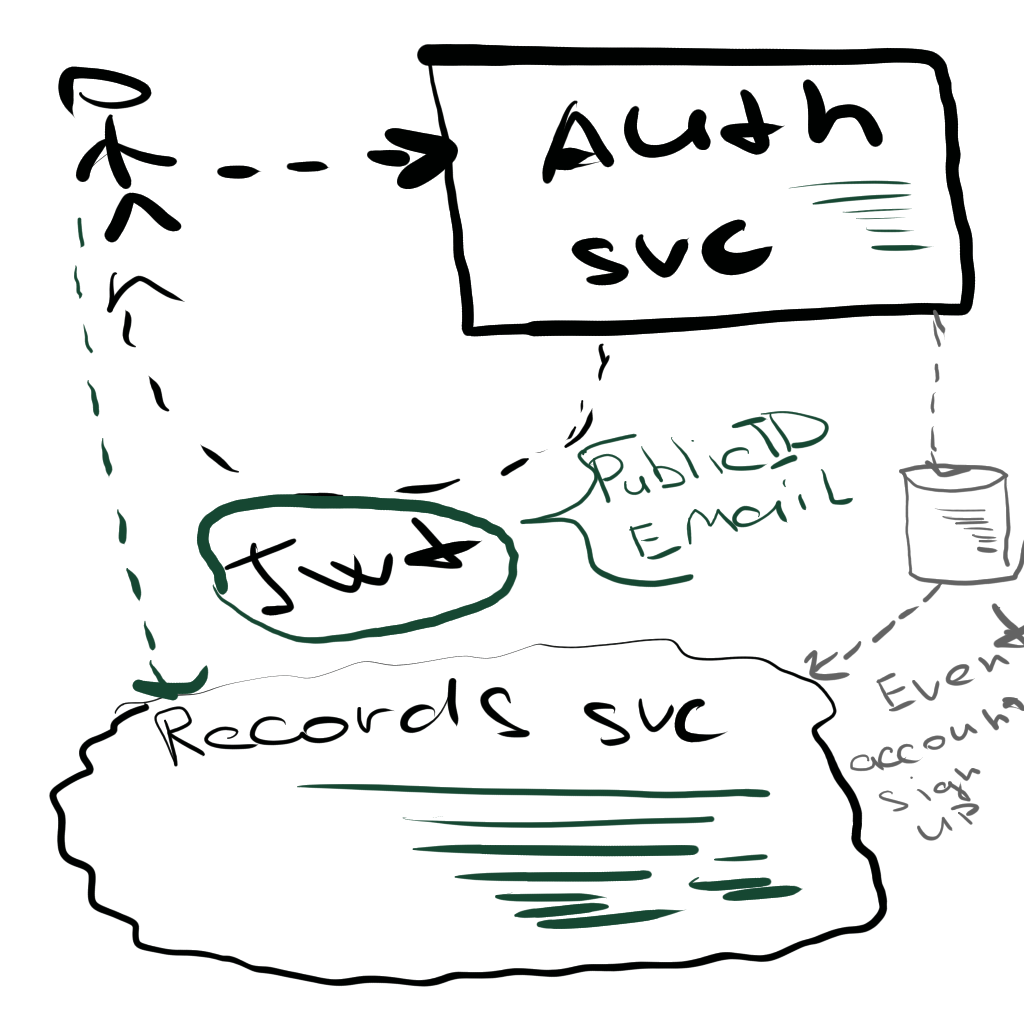 Auth
svc
PublicID
EMaiL
Jwt
Records svc
Event
account
sign
up